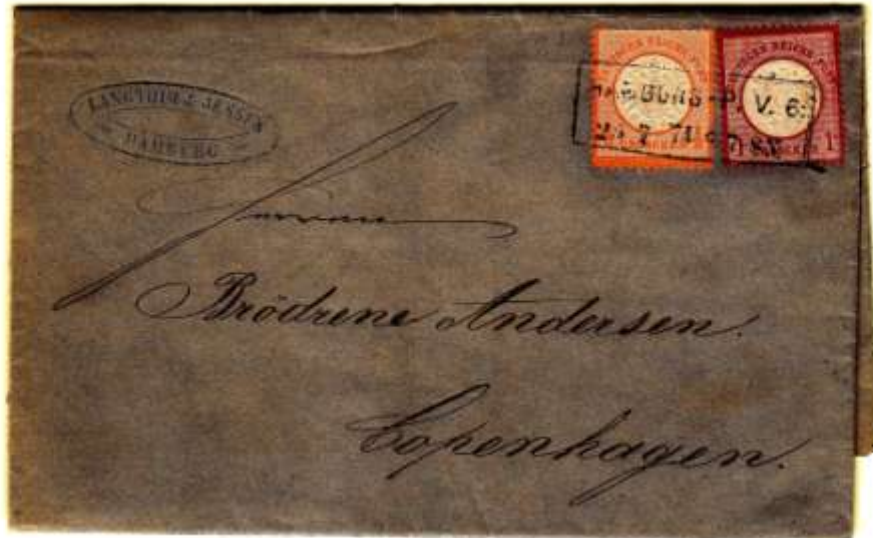 LANGTHIM & JENSEN
HAMBURG
HAMBURG-P. V. 6.
7 71
1
Herren
Brödrene Andersen.
Copenhagen.